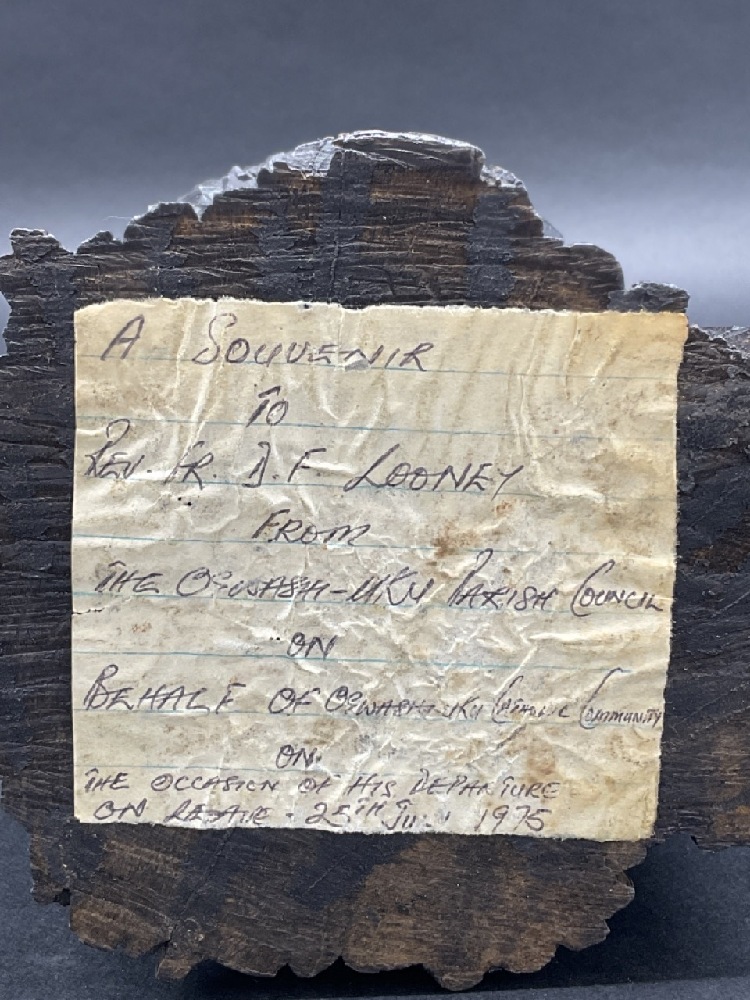 A SOUVENIR
TO
REV. FR. D. F. LOONEY
FROM
THE OGWASHI-UKU PARISH COUNCIL
ON
BEHALF OF OGWASHI-UKU CATHOLIC COMMUNITY
ON
THE OCCASION OF HIS DEPARTURE
ON LEAVE - 25TH 1975